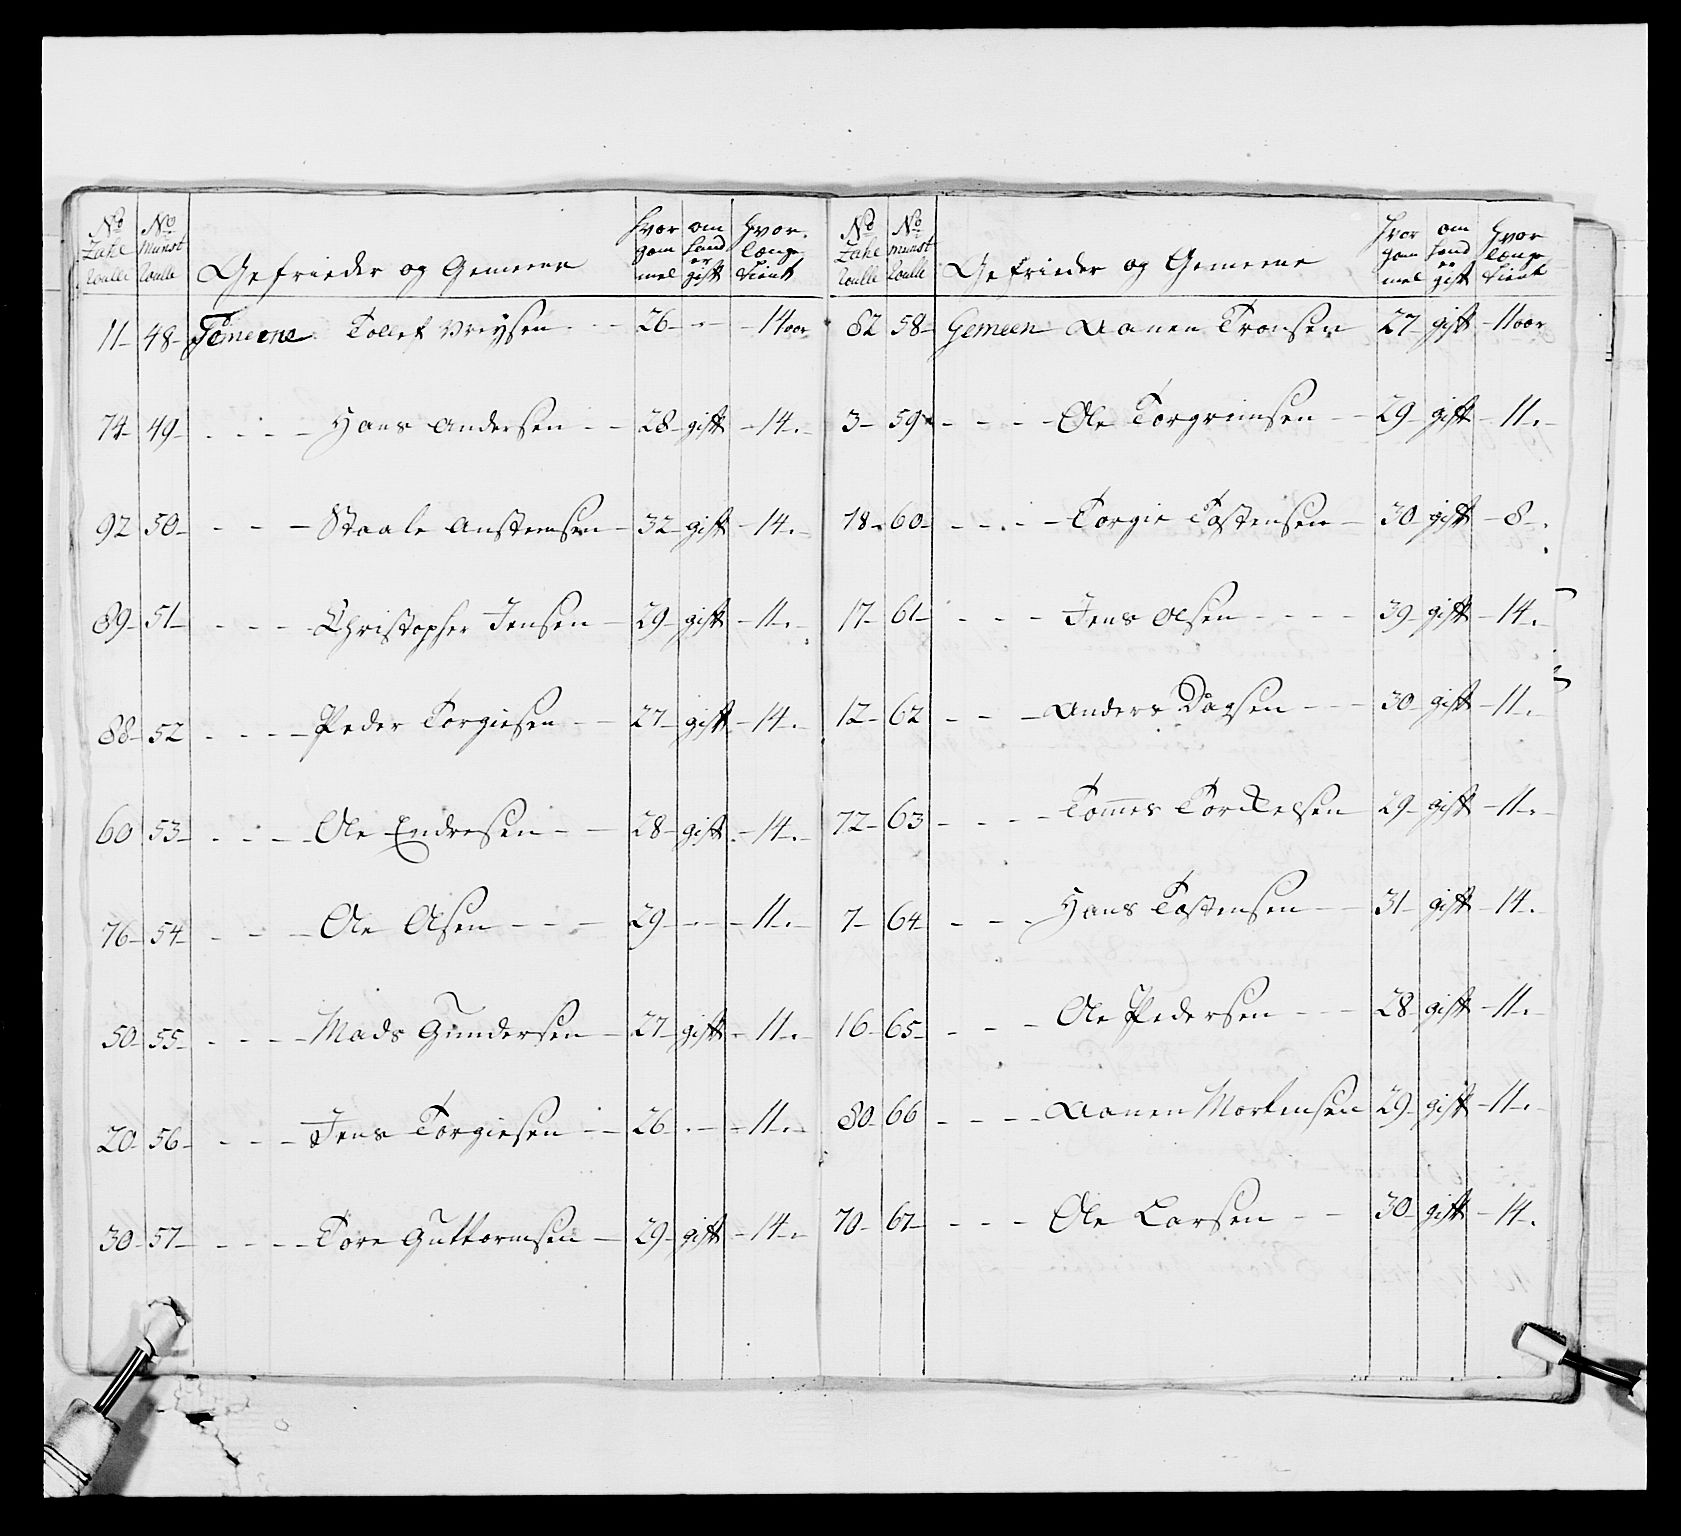 No Zahl Roulle | No Munst Roulle | Gefrieder og Gemeene | Hvor gam mel | om hand er gift | Hvor længe tient
11 - 48 - Gemeene Tollef - - 26 - - - 14 aar
74 - 49 - - - - Hans Andersen - - 28 - gift - 14. -
92 50 - - - - Staale Anstensen - 32 - gift - 14. -
89 - 51 - - - - Christopher Jensen - 29 - gift - 11. -
88 - 52 - - - - Peder Torgiesen - - 27 - gift - 14. -
60 53 - - - - Ole Endresen - - 28 - gift - 14. -
76 - 54 - - - Ole Olsen - - - 29 - - - 11. -
50 - 55 - - - - Mads Gundersen - 27 - gift - 11. -
20 - 56 - - - - Jens Torgiesen - - 26 - - - 11. -
30 - 57 - - - - Tore Guttormsen - 29 - gift - 14. -
No Zahl Roulle | No Munst Roulle | Gefrieder og Gemeene | Hvor gam mel | om hand er gift | Hvor længe tient
82 58 - Gemeen Aanen Tronsen 27 - gift - 11 aar
3 - 59 - - - - Ole Torgrimsen - - 29 - gift - 11. -
18 - 60 - - - - Torgie Tostensen - 30 - gift - 8 -.
17 - 61 - - - - Jens Olsen - - - - 39 - gift - 14. -
12 - 62 - - - Anders Dagsen - - - 30 - gift - 11. -
72 - 63 - - - - Tommes Torkelsen 29 - gift - 11. -
7 - 64 - - - Hans Tostensen - - 31 - gift - 14. -
16 - 65 - - - - Ole Pedersen - - - 28 - gift - 11. -
80 - 66 - - - - Aanen Mortensen 29 - gift - 11. -
70 - 67 - - - - Ole Larsen - - 30 - gift - 14.